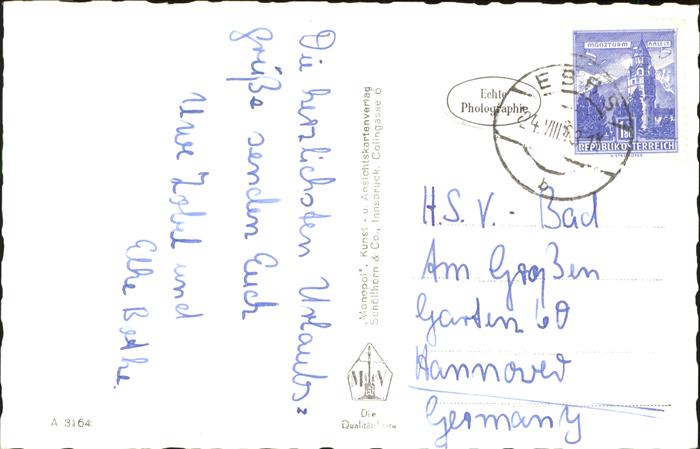 Die herzlichsten Urlaubs=
grüße senden Euch
Uwe Zobel und
Elke Bethe.
"Monopol", Kunst - u. Ansichtskartenverlag
Schöllhorn & Co., Innsbruck, Colingasse 6
M V
Die
Qualitätskarte
A 3164
Echte
Photographie
24. VIII.
b
MÜNZTURM HALL I. T.
1.80
REPUBLIK ÖSTERREICH
H.S.V. - Bad
Am Großen
Garten 60
Hannover
Germany